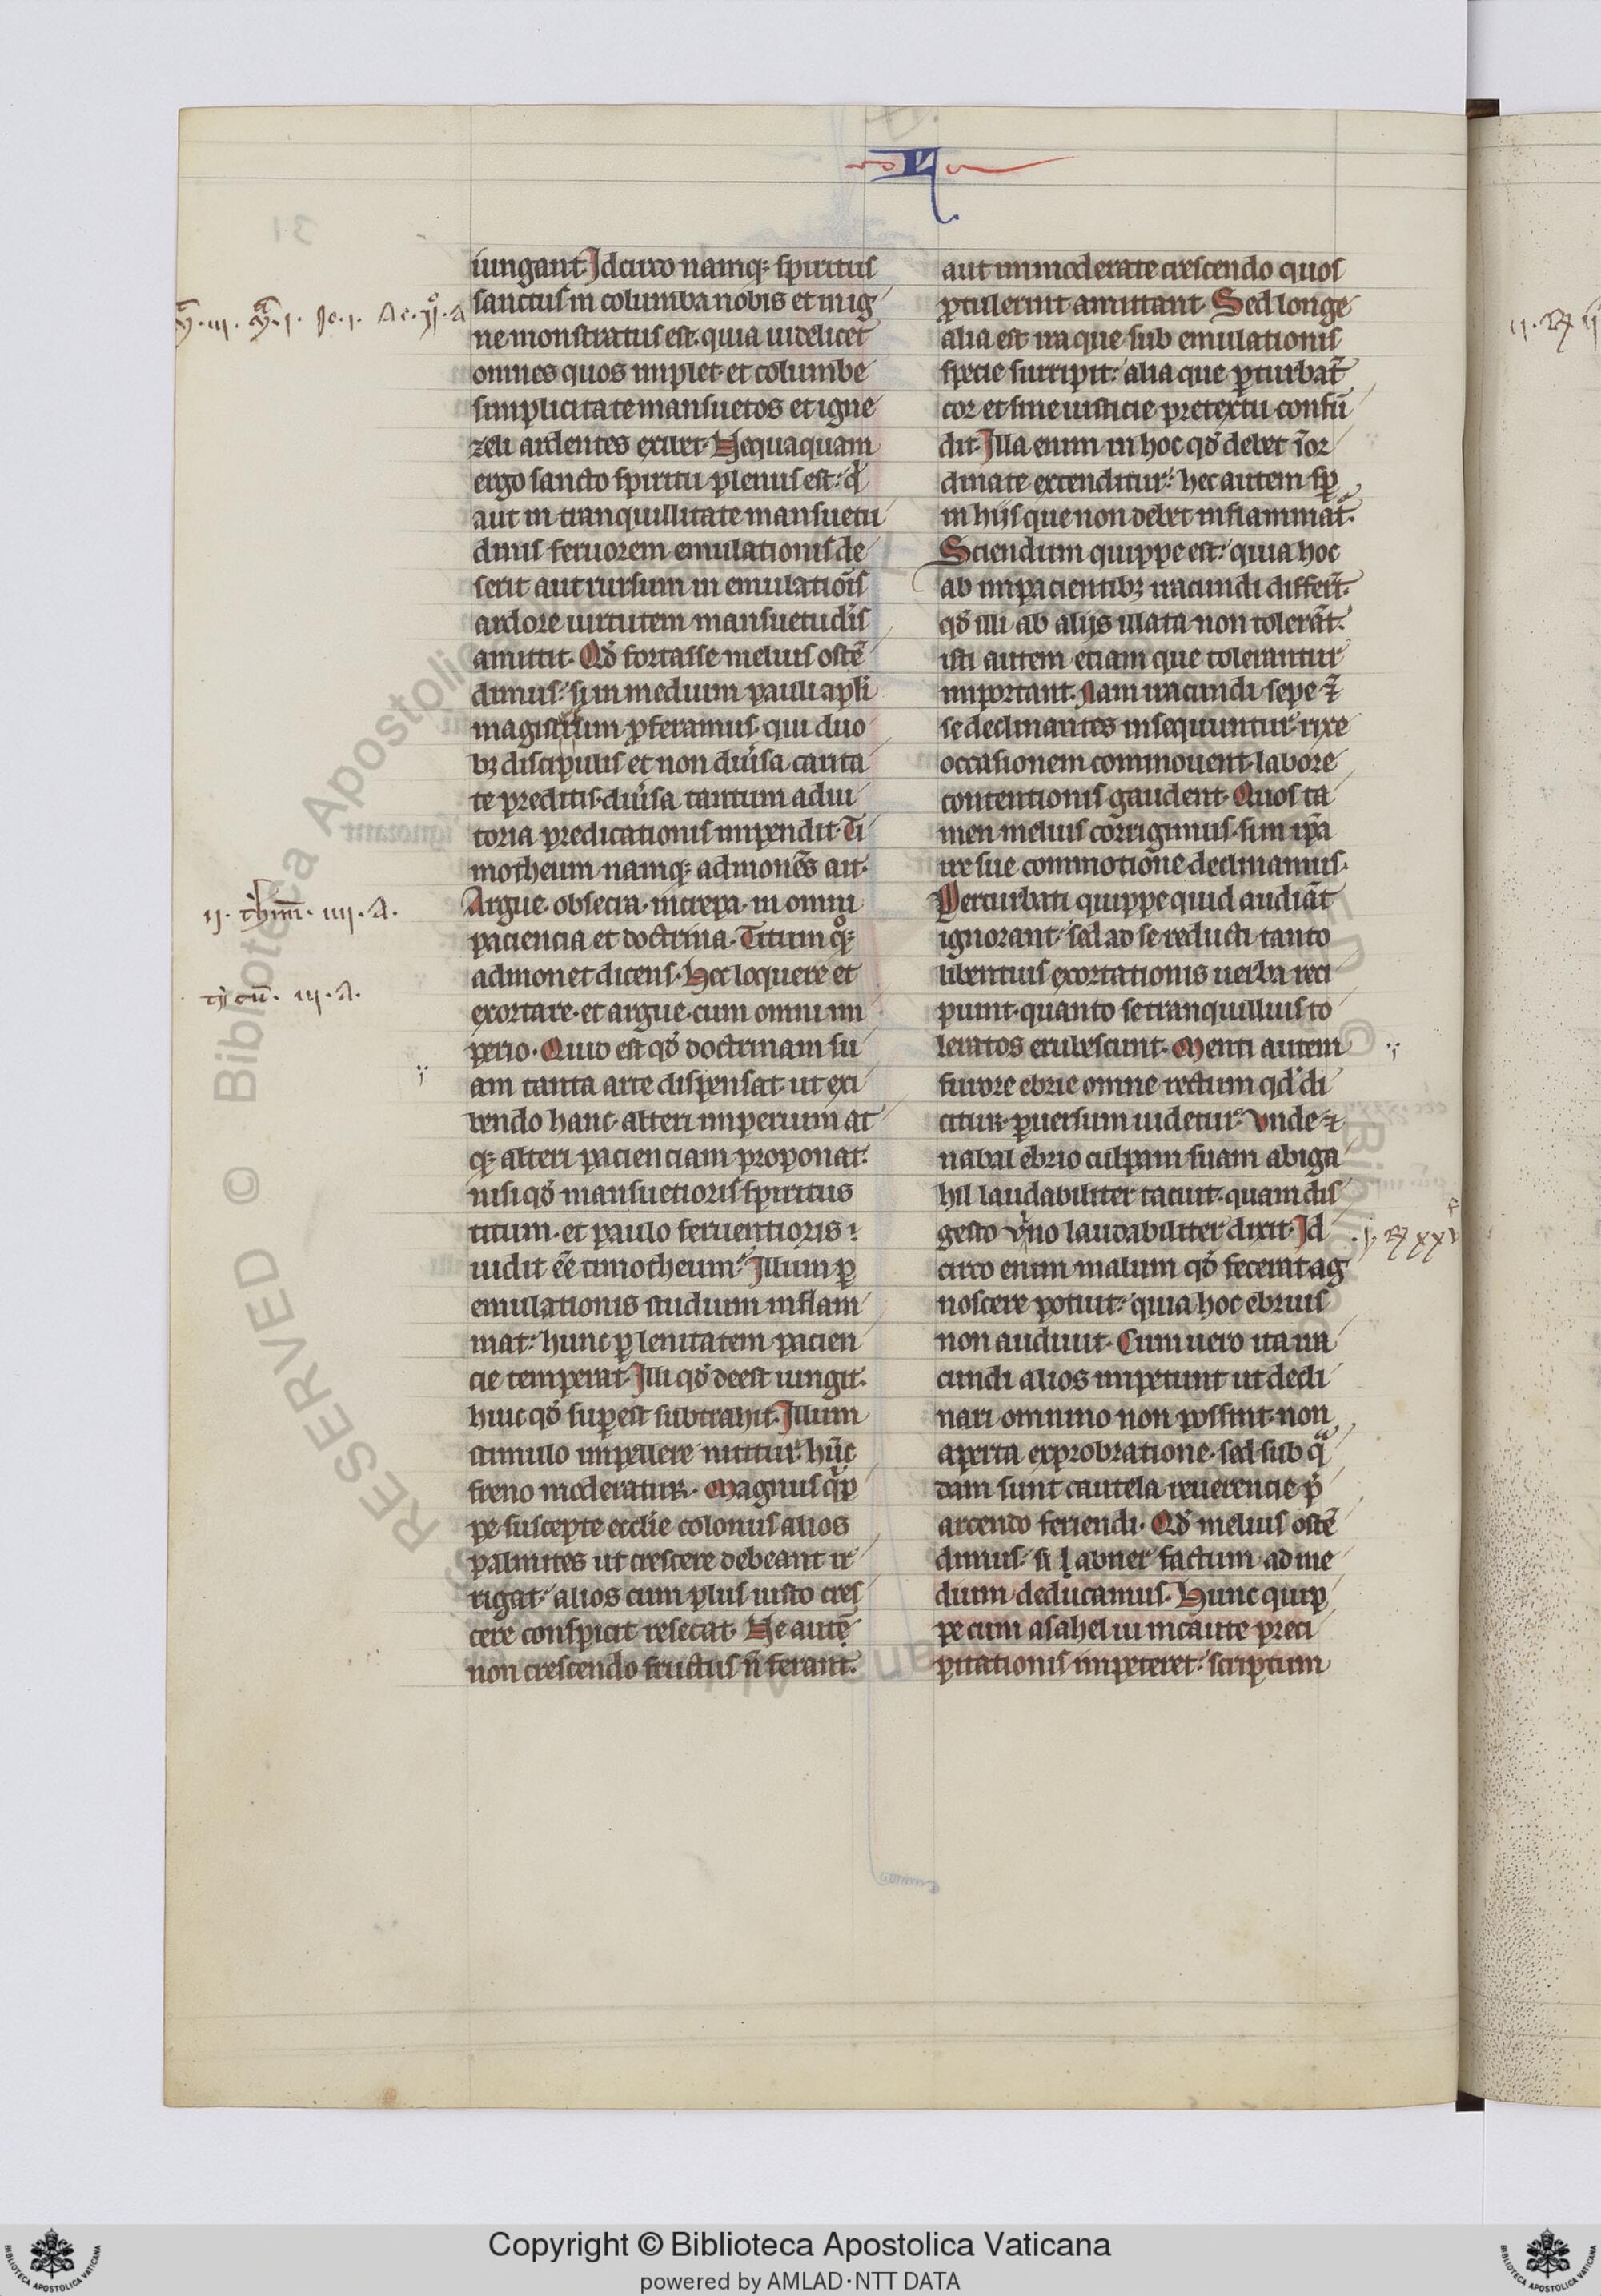 iungant. Idcirco namq; spiritus
sanctus in columba nobis et in ig
ne monstratus est. quia uidelicet
omnes quos implet. et columbe
simplicitate mansuetos et igne
zeli ardentes exibet. Nequaquam
ergo sancto spiritu plenus est: q̇
aut in tranquillitate mansuetu
dinis feruorem emulationis de
serit aut rursum in emulatiōis
ardore uirtutem mansuetudīs
amittit. Qd̓ fortasse melius ostē
dimus: si in medium pauli apl̓i
magistrum ꝓferamus. qui duo
bꝫ discipulis et non diu̓sa carita
te preditis. diu̓sa tantum adiu
toria predicationis impendit. Ti
motheum namq; admonēs ait.
Argue. obsecra. increpa. in omni
paciencia et doctrina. Titum q̊;
admonet dicens. Hec loquere et
exortare. et argue. cum omni im
perio. Quid est qd̓ doctrinam su
am tanta arte dispensat. ut exi
bendo hanc. alteri imperium at
q; alteri pacienciam proponat.
nisi qd̓ mansuetioris spiritus
titum. et paulo feruentioris
uidit eē timotheum. Illum ꝑ
emulationis studium inflam
mat: hunc ꝑ lenitatem pacien
cie temperat. Illi qd̓ deest iungit.
huic qd̓ suꝑest subtrahit. Illum
stimulo impellere nititur. hūc
freno moderatur. Magnus q̓ꝑ
pe suscepte ecclie colonus alios
palmites ut crescere debeant ir
rigat: alios cum plus iusto cres
cere conspicit resecat. Ne autē
non crescendo fructus n̄ ferant.
aut inmoderate crescendo quos
ꝓtulerint amittant. Sed longe
alia est ira que sub emulationis
specie surripit: alia que ꝑturbat̄
cor et sine iusticie pretextu confū
dit. Illa enim in hoc qd̓ debet īor
dinate extenditur: hec autem sp̄
in hijs que non debet inflammat̄.
Sciendum quippe est: quia hoc
ab impacientibꝫ iracundi differūt.
qd̓ illi ab alijs illata non tolerāt.
isti autem etiam que tolerantur
important. Nam iracundi sepe ⁊
se declinantes insequuntur. rixe
occasionem commouent. labore
contentionis gaudent. Quos ta
men melius corrigimus. si in ip̄a
ire sue commotione declinamus.
Perturbati quippe quid audiāt
ignorant: sed ad se reducti tanto
libentius exortationis uerba reci
piunt. quanto se tranquillius to
leratos erubescunt. Menti autem
furore ebrie omne rectum qd̓ di
citur. ꝑuersum uidetur. Vnde ⁊
nabal ebrio culpam suam abiga
hil laudabiliter tacuit. quam dis
gesto uino laudabiliter dixit. Id
circo enim malum qd̓ fecerat ag
noscere potuit: quia hoc ebrius
non audiuit. Cum uero ita ira
cundi alios impetunt ut decli
nari omnino non possint. non
aperta exprobratione. sed sub qͣ
dam sunt cautela reuerencie ꝑ
arcendo feriendi. Qd̓ melius ostē
dimus: si abner factum ad me
dium deducamus. Hunc quip
pe cum asahel ui incaute preci
pitationis impeteret: scriptum
ii. thim̄. iiii. A.
tytū. iii. A.
Copyright © Biblioteca Apostolica Vaticana
powered by AMLAD·NTT DATA